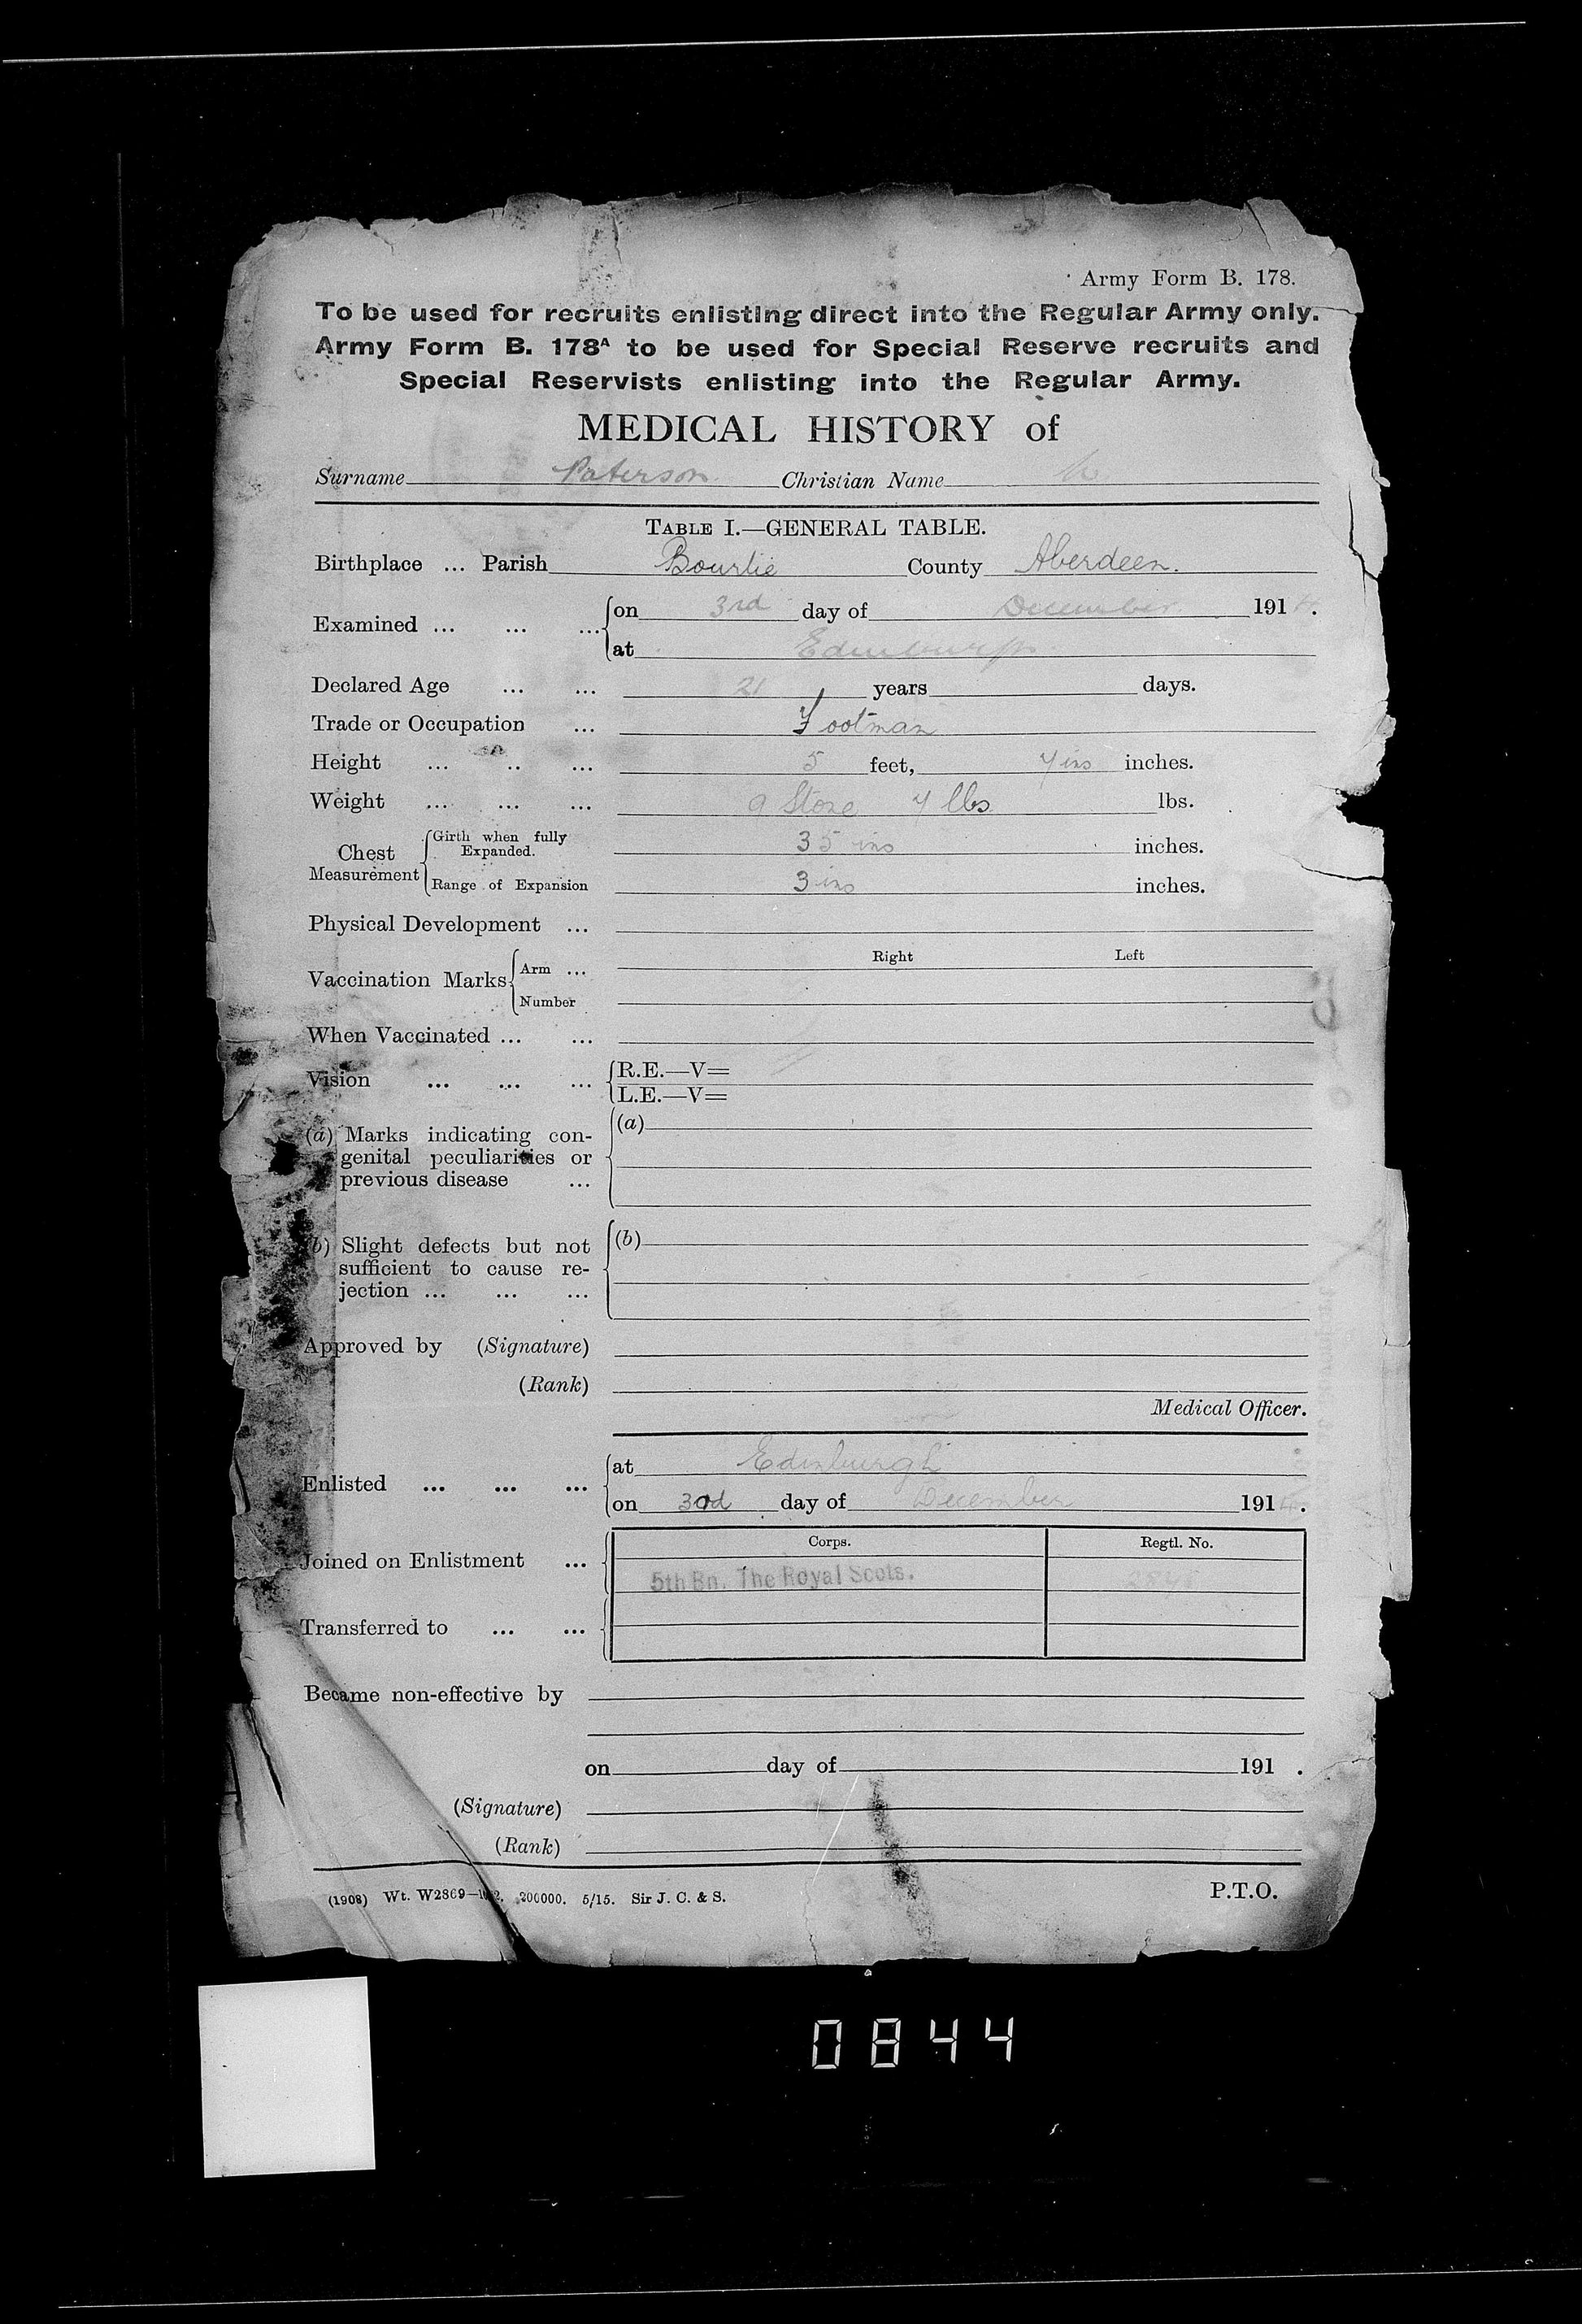 Army Form B. 178.
To be used for recruits enlisting direct into the Regular Army only.
Army Form B. 178A to be used for Special Reserve recruits and
Special Reservists enlisting into the Regular Army.
MEDICAL HISTORY of
Surname Paterson Christian Name
TABLE I.—GENERAL TABLE.
Birthplace ... Parish Bourlie County Aberdeen.
Examined ... ... ... on 3rd day of December 1914.
at Edinburgh
Declared Age ... ... 21 years days.
Trade or Occupation ... Footman
Height ... .. ... 5 feet, 7 ins inches.
Weight ... ... ... 9 Stone 7 lbs lbs.
Chest Measurement Girth when fully Expanded. 35 ins inches.
Range of Expansion 3 ins inches.
Physical Development ...
Right Left
Vaccination Marks Arm ...
Number
When Vaccinated ... ...
Vision ... ... ... R.E.—V=
L.E.—V=
(a) Marks indicating con- (a)
genital peculiarities or
previous disease ...
(b) Slight defects but not (b)
sufficient to cause re-
jection ... ... ...
Approved by (Signature)
(Rank)
Medical Officer.
Enlisted ... ... ... at Edinburgh
on 3rd day of December 1914.
Corps. Regtl. No.
Joined on Enlistment ... 5th Bn. The Royal Scots.
Transferred to ... ...
Became non-effective by
on day of 191 .
(Signature)
(Rank)
(1908) Wt. W2869— 200000. 5/15. Sir J. C. & S. P.T.O.
0844